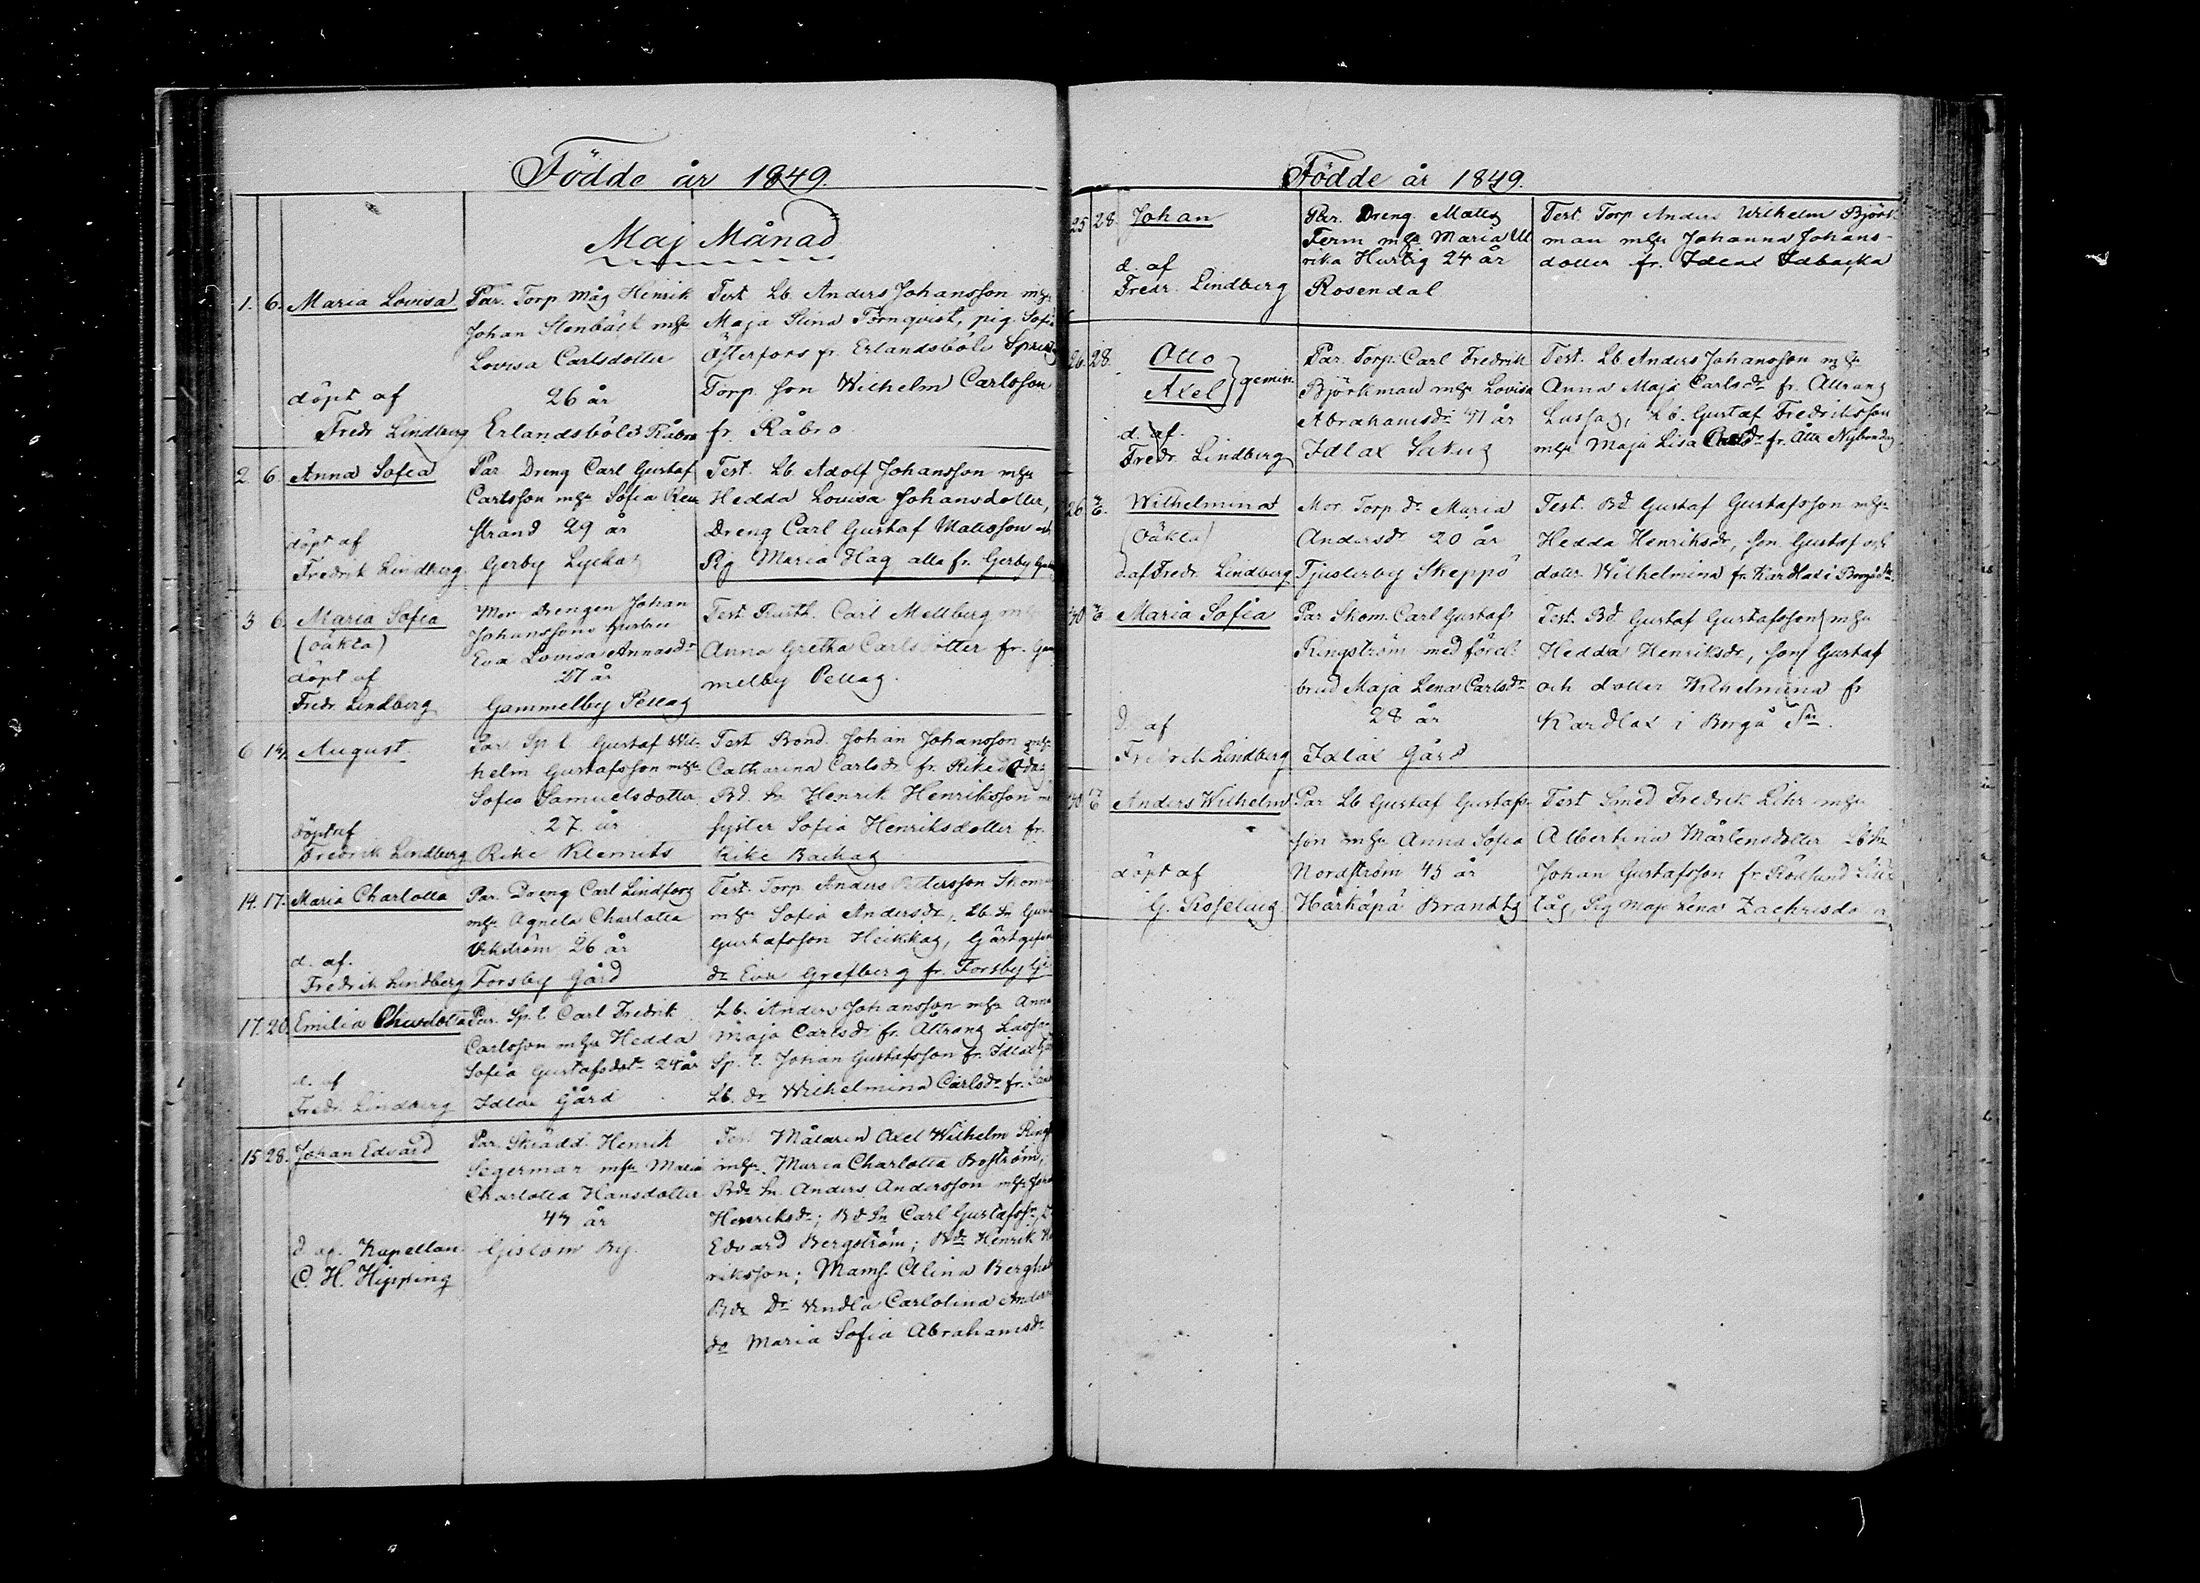 Födde år 1849.
Maj Månad
1. 6. Maria Lovisa
döpt af
Fredr Lindberg
Par. Torp måg Henrik
Johan Stenbäck mhu
Lovisa Carlsdotter
26 år
Erlandsböle Råbro
Test. Lb. Anders Johansson mhu
Maja Stina Törnqvist, pig. Sofia
Österfors fr. Erlandsböle
Torp. son Wilhelm Carlsson
fr. Råbro
2 6. Anna Sofia
döpt af
Fredrik Lindberg
Par Dreng Carl Gustaf
Carlsson mhu Sofia Ren
strand 29 år
Gerby Lyckas
Test. Lb. Adolf Johansson mhu
Hedda Lovisa Johansdotter,
Dreng Carl Gustaf Mattsson
Pig Maria Hag alla fr. Gerby
3 6. Maria Sofia
(oäkta)
döpt af
Fredr. Lindberg
Mor Drengen Johan
Johanssons hustru
Eva Lovisa Annasdr
27 år
Gammelby Pellas
Test. Carl Mellberg
Anna Gretha Carlsdotter fr. Gam
melby Pellas.
6 14. August
döpt af
Fredrik Lindberg
Par Sp. t. Gustaf Wil-
helm Gustafsson mhu
Sofia Samuelsdotter
27 år
Rike Klemits
Test Bond. Johan Johansson mhu
Catharina Carlsdr fr. Rike
Bd. Sn Henrik Henriksson
syster Sofia Henriksdotter fr.
Rike Backas
14. 17. Maria Charlotta
d. af.
Fredrik Lindberg
Par. Dreng Carl Lindfors
mhu Agneta Charlotta
26 år
Forsby Gård
Test. Torp. Anders Pettersson
mhu Sofia Andersdr, Lb. Sn
Gustafsson Heikkas,
dr Eva Grefberg fr. Forsby
17. 20. Emilia Charlotta
d. af
Fredr Lindberg
Par. Sp. t. Carl Fredrik
Carlsson mhu Hedda
Sofia Gustafsdot 24 år
Idlax Gård
Lb. Anders Johansson mhu Anna
Maja Carlsdr fr. Åttrang Lassas
Sp. t. Johan Gustafsson fr. Idlax
Lb. dr Wilhelmina Carlsdr fr.
15 28. Johan Edvard
d. af. Kapellan
C. H. Hipping
Par. Skrädd. Henrik
Segerman mhu Maria
Charlotta Hansdotter
47 år
Gislom By.
Test Målaren Axel Wilhelm
mhu Maria Charlotta Boström,
Bde Sn Anders Andersson mhu
Henriksdr; Bd Sn Carl Gustafsson,
Edvard Bergström; Bde Henrik
riksson; Mams. Alina
Bde Dr Vendla Carolina Anders
do Maria Sofia Abrahamsdr
Födde år 1849.
25 28. Johan
d. af
Fredr. Lindberg
Par. Dreng Matts
Ferm mhu Maria Ul
rika Hurtig 24 år
Rosendal
Test. Torp Anders Wilhelm Björk-
man mhu Johanna Johans-
dotter fr. Idlax Idbacka
26. 28. Otto
Axel gemin.
d. af.
Fredr. Lindberg
Par. Torp. Carl Fredrik
Björkman mhu Lovisa
Abrahamsdr 41 år
Idlax
Test. Lb Anders Johansson mhu
Anna Maja Carlsdr fr. Åttrang
Lassas, Lb. Gustaf Fredriksson
mhu Maja Lisa
26 Wilhelmina
(oäkta)
d. af Fredr. Lindberg
Mor. Torp. dr Maria
Andersdr 20 år
Tjusterby Skeppö
Test. Bd Gustaf Gustafsson mhu
Hedda Henriksdr, son Gustaf och
dottr. Wilhelmina fr. Kardlax i Borgå Sn.
30 Maria Sofia
d. af
Fredrik Lindberg
Par Skom. Carl Gustaf
Ringström med förel.
brud Maja Lena Carlsdr
28 år
Idlax Gård
Test. Bd. Gustaf Gustafsson mhu
Hedda Henriksdr, son Gustaf
och dotter Wilhelmina fr
Kardlax i Borgå Sn.
30 Anders Wilhelm
döpt af
G.
Par Lb Gustaf Gustafs-
son mhu Anna Sofia
Nordström 45 år
Härkäpä Brandts
Test Smed Fredrik Lihr mhu
Albertina Mårtensdotter Lb Sn
Johan Gustafsson fr. Rödsund
Pig Maja Lena Zachrisdotter